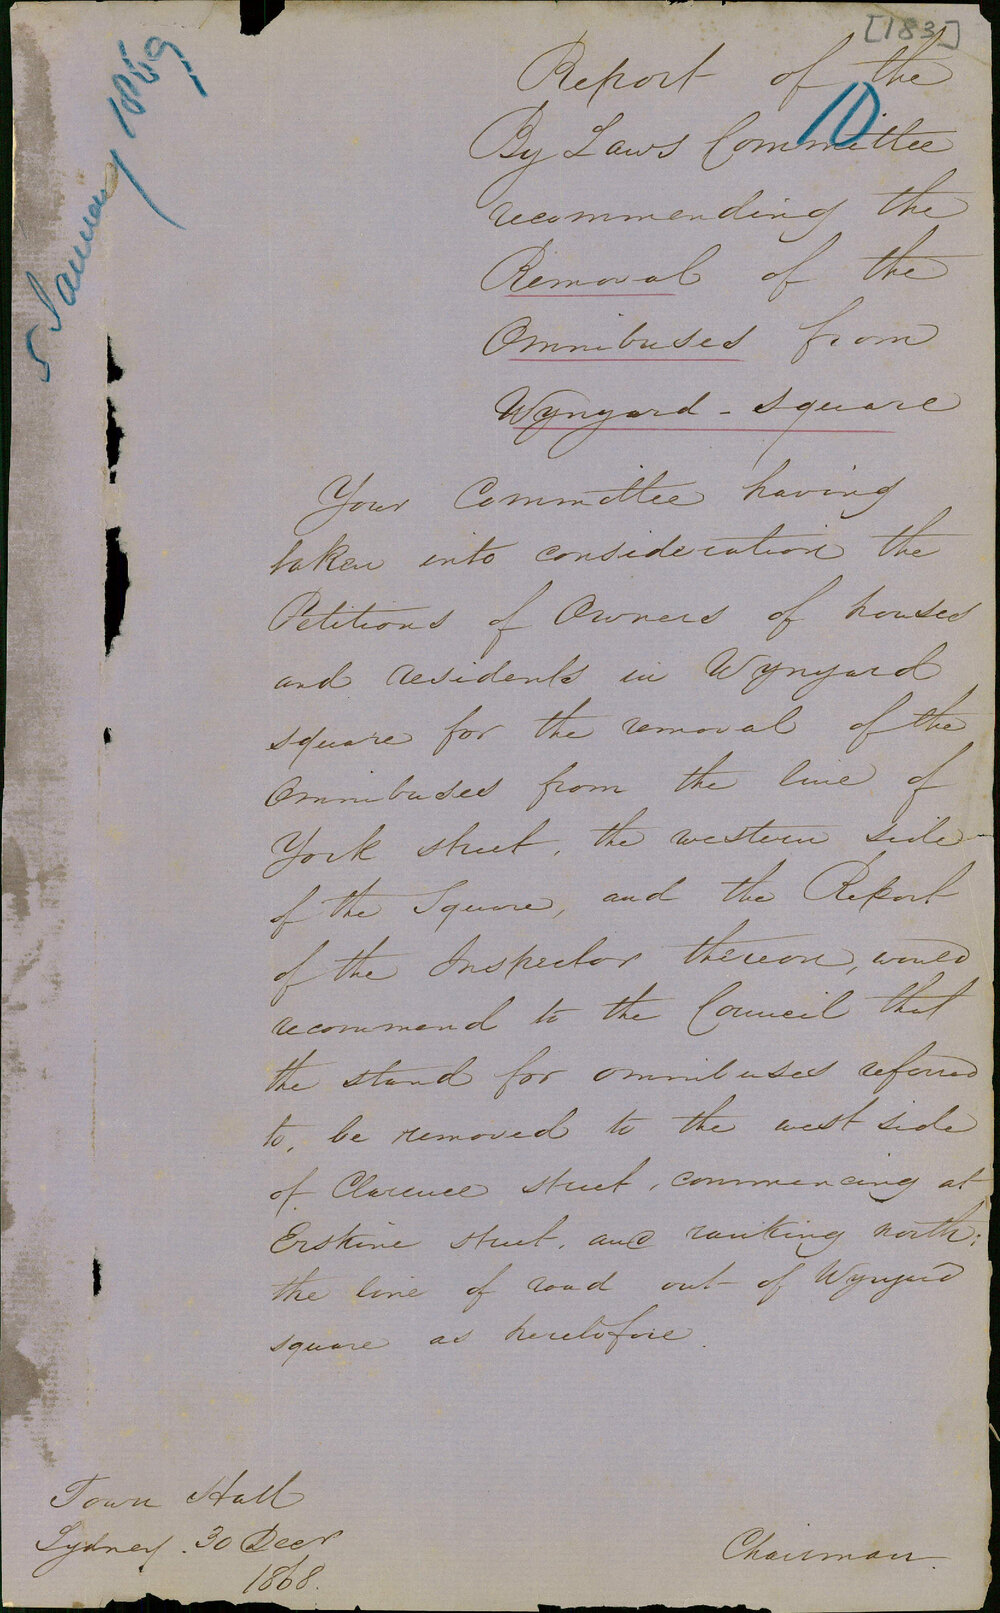 [183]
10
5 January 1869
Report of the
By Laws Committee
recommending the
Removal of the
Omnibuses from
Wynyard - square
Your Committee having
taken into consideration the
Petitions of Owners of houses
and residents in Wynyard
square for the removal of the
Omnibuses from the line of
York street, the western side
of the Square, and the Report
of the Inspector thereon, would
recommend to the Council that
the stand for omnibuses referred
to, be removed to the west side
of Clarence street, commencing at
Erskine street, and ranking north;
the line of road out of Wynyard
square as heretofore.
Town Hall
Sydney. 30 Decr
1868.
Chairman.